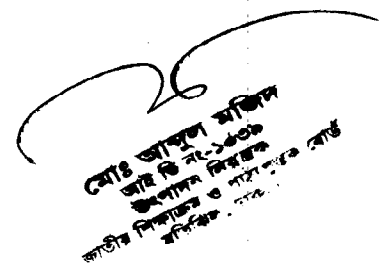 মোঃ আব্দুল মজিদ
আই ডি নং-১৩৩৯
উৎপাদন নিয়ন্ত্রক
জাতীয় শিক্ষাক্রম ও বোর্ড